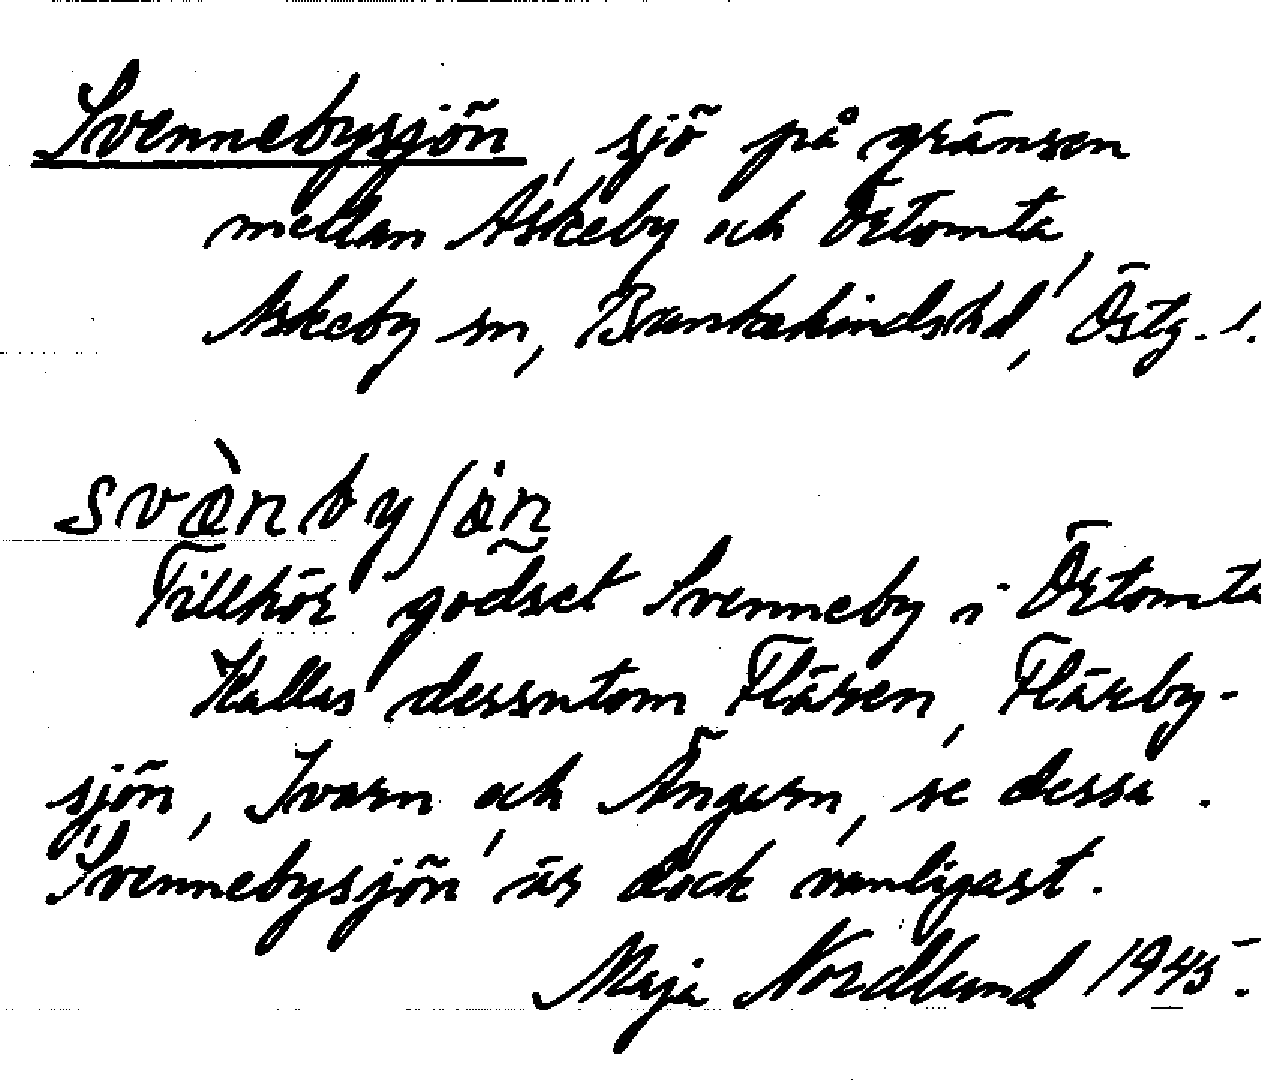 Svennebysjön, sjö på gränsen
mellan Askeby och Örtomta
Askeby sn, Bankekindshd, Östg. l.
svæ̀nbyʃön
Tillhör godset Svenneby i Örtomta
Kallas dessutom Flären, Flärby-
sjön, Ivarn och Ängarn, se dessa.
"Svennebysjön" är dock vanligast.
Maja Nordlund 1945.